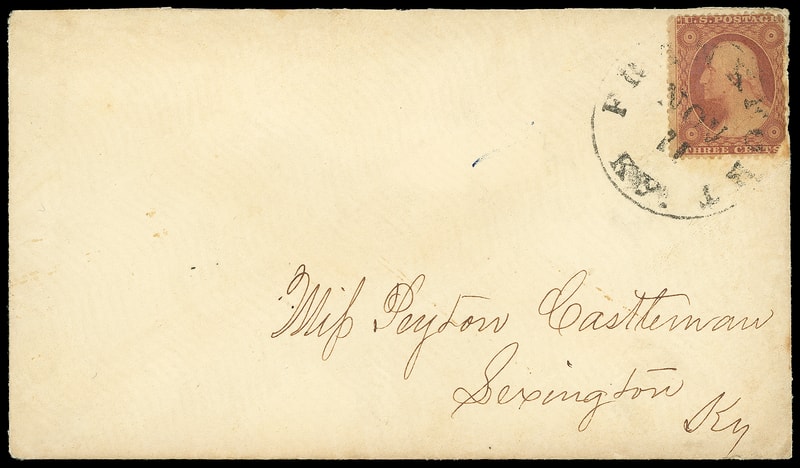 U.S. POSTAGE
THREE CENTS
FRANKFORT
NOV
11
Ky.
Miſs Peyton Castleman
Lexington
Ky